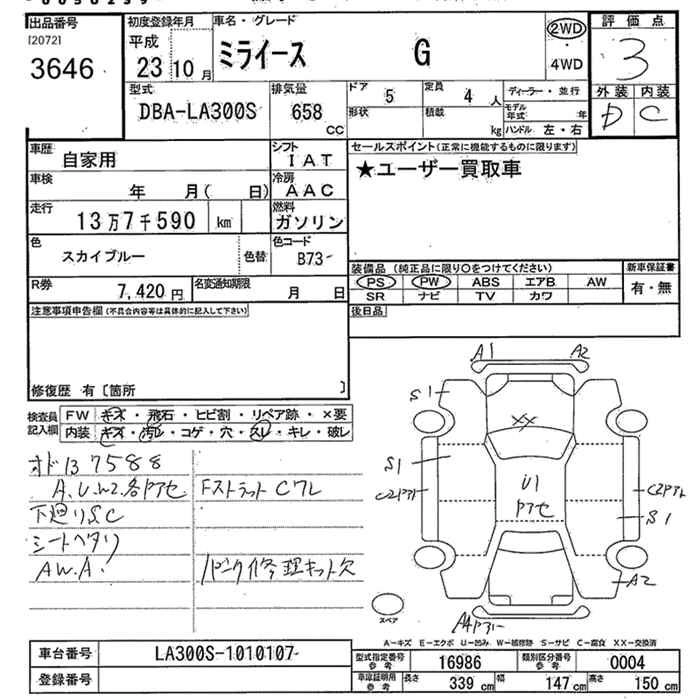 出品番号
[2072]
3646
初度登録年月
平成
23 10 月
車名・グレード
ミライース G
2WD
・
4WD
評価点
3
外装 内装
D C
型式
DBA-LA300S
排気量
658
CC
ドア
5
定員
4 人
形状
積載
kg
ディーラー・並行
モデル年式 年
ハンドル 左・右
車歴
自家用
シフト
IAT
車検
年 月( 日)
冷房
AAC
走行
13万7千590 km
燃料
ガソリン
色
スカイブルー
色替
色コード
B73-
R券
7,420 円
名変通知期限
月 日
セールスポイント(正常に機能するものに限ります)
★ユーザー買取車
装備品(純正品に限り○をつけてください)
PS PW ABS エアB AW
SR ナビ TV カワ
新車保証書
有・無
後日品
注意事項申告欄(不具合内容等は具体的に記入して下さい)
修復歴 有〔箇所 〕
検査員記入欄
FW キズ・飛石・ヒビ割・リペア跡・×要
内装 キズ・汚レ・コゲ・穴・スレ・キレ・破レ
オド137588
A.U.W2.各アセ
下廻りS.C
シートヘタリ
A.W.A.
FストラットCワレ
パンク修理キット欠
A1 A2
S1
XX
S1
U1
アセ
S1
A2
スペア
A-キズ E-エクボ U-凹み W-補修跡 S-サビ C-腐食 XX-交換済
車台番号
LA300S-1010107
登録番号
型式指定番号
参考
16986
類別区分番号
参考
0004
車庫証明用
参考
長さ 339 cm 幅 147 cm 高さ 150 cm